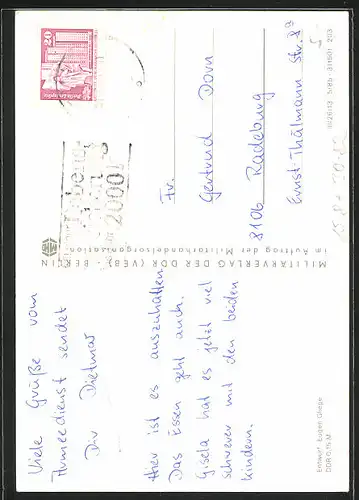 Viele Grüße vom
Armeedienst sendet
Dir Dietmar
Hier ist es auszuhalten.
Das Essen geht auch.
Gisela hat es jetzt viel
schwerer mit den beiden
Kindern.
Entwurf: Eugen Gliege
DDR 0,15 M
MILITÄRVERLAG DER DDR (VEB) - BERLIN
im Auftrag der Militärhandelsorganisation
20
Fr.
Gertrud Dorn
8106 Radeburg
Ernst-Thälmann Str. 8